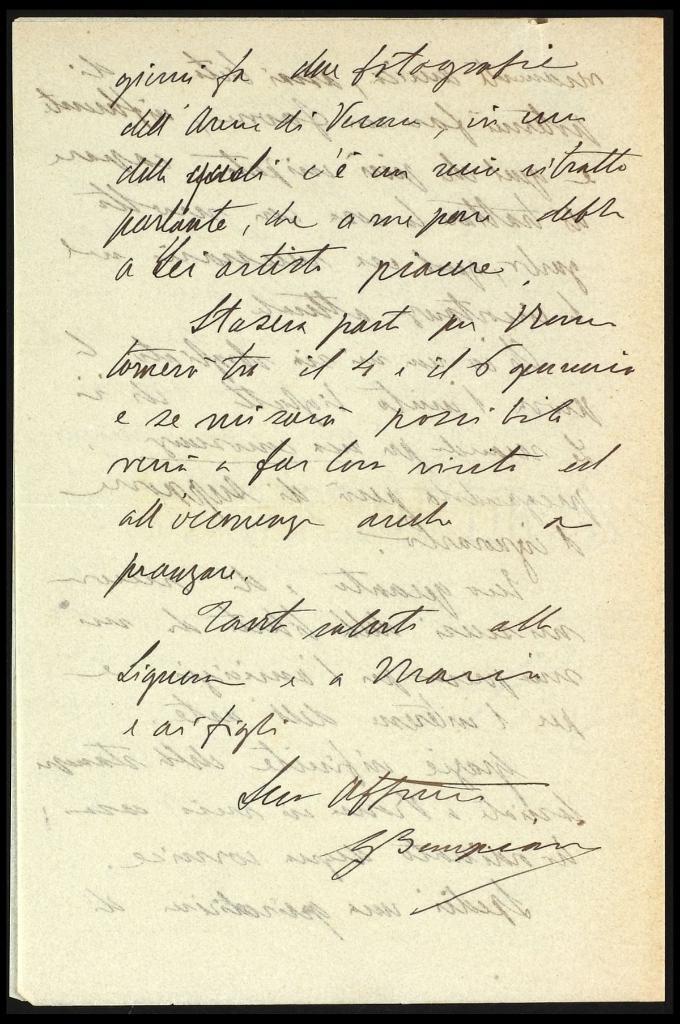 giorni fa due fotografie
dell'Arena di Verona, in una
delle quali c'è un mio ritratto
parlante, che a me pare debba
a Lei artista piacere.
Stasera parto per
tornerò tra il 4 e il 6 gennaio
e se mi sarà possibile
verrò a far loro visita ed
all'occorrenza anche a
pranzare.
Tanti saluti alla
Signora e a Maria
e ai figli
Suo Aff.mo
G